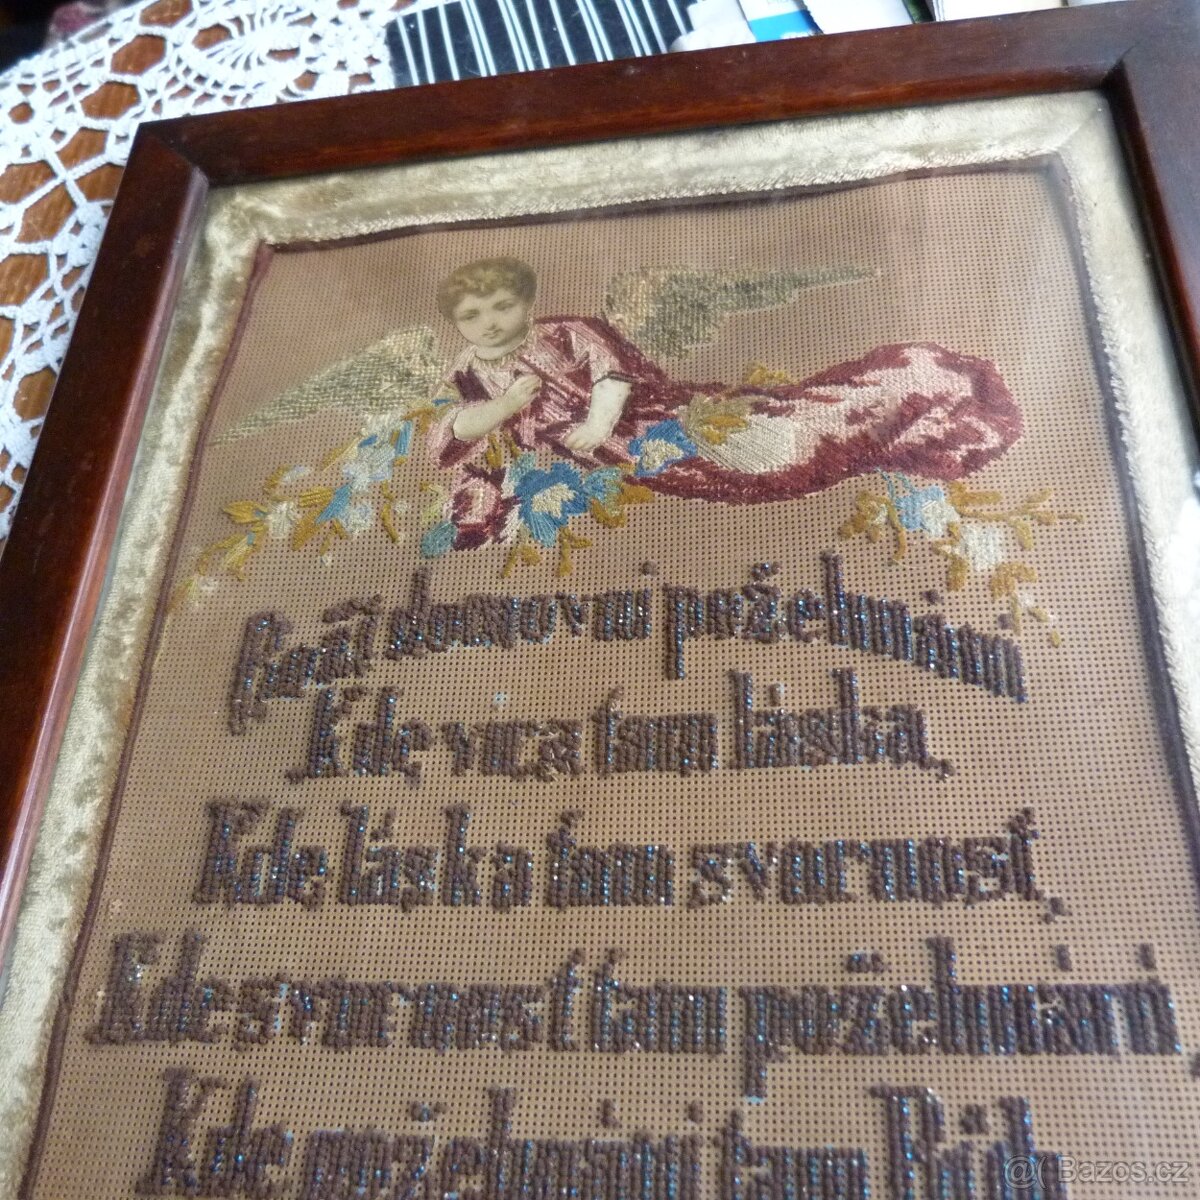 Staň domovní požehnání
Kde víra tam láska,
Kde láska tam svornost,
Kde svornost tam požehnání
Kde požehnání tam Bůh
@( Bazos.cz